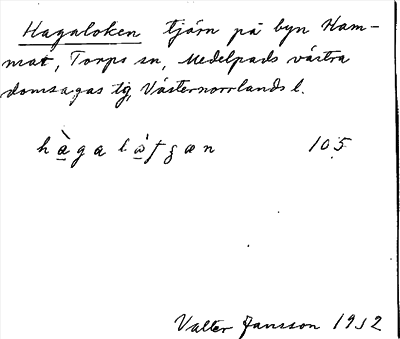 Hagaloken tjärn på byn Ham-
mat, Torps sn, Medelpads västra
domsagas tg, Västernorrlands l.
105
Valter Jansson 1912